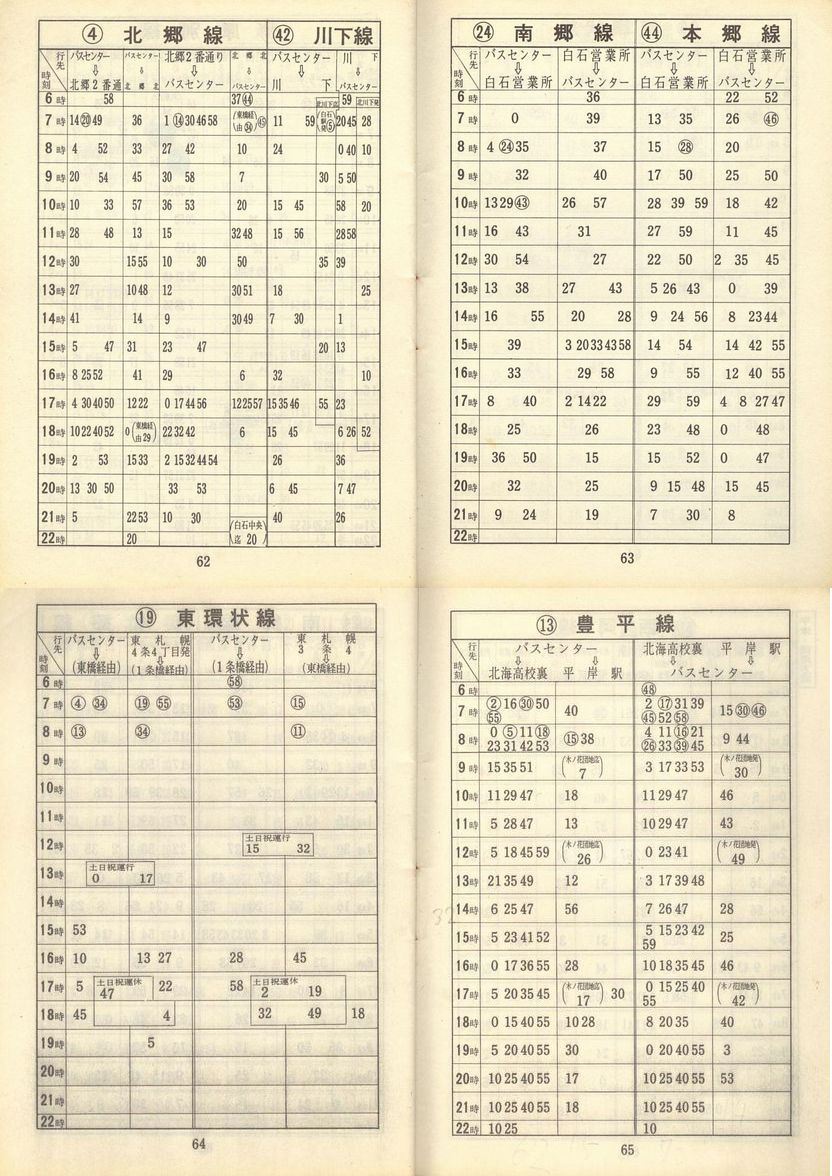 ④ 北郷線 ㊷ 川下線
行先 バスセンター バスセンター 北郷2番通り 北郷北 バスセンター 川下
時刻 ⇩ ⇩ ⇩ ⇩ ⇩ ⇩
北郷2番通 北郷北 バスセンター バスセンター 川下 バスセンター
6時 58 37㊹ 北川下迄 59 北川下発
7時 14⑳49 36 1⑭304658 (東橋経由㉞)㊺ 11 59 2045 28
8時 4 52 33 27 42 10 24 0 40 10
9時 20 54 45 30 58 7 30 5 50
10時 10 33 57 36 53 20 15 45 58 20
11時 28 48 13 15 32 48 15 56 28 58
12時 30 15 55 10 30 50 35 39
13時 27 10 48 12 30 51 18 25
14時 41 14 9 30 49 7 30 1
15時 5 47 31 23 47 20 13
16時 8 25 52 41 29 6 32 10
17時 4 30 40 50 12 22 0 17 44 56 12 25 57 15 35 46 55 23
18時 10 22 40 52 0(東橋経由29) 22 32 42 6 15 45 6 26 52
19時 2 53 15 33 2 15 32 44 54 26 36
20時 13 30 50 33 53 6 45 7 47
21時 5 22 53 10 30 (白石中央迄 20) 40 26
22時 20
62
㉔ 南郷線 ㊹ 本郷線
行先 バスセンター 白石営業所 バスセンター 白石営業所
時刻 ⇩ ⇩ ⇩ ⇩
白石営業所 バスセンター 白石営業所 バスセンター
6時 36 22 52
7時 0 39 13 35 26 ㊻
8時 4 ㉔ 35 37 15 ㉘ 20
9時 32 40 17 50 25 50
10時 13 29 ㊸ 26 57 28 39 59 18 42
11時 16 43 31 27 59 11 45
12時 30 54 27 22 50 2 35 45
13時 13 38 27 43 5 26 43 0 39
14時 16 55 20 28 9 24 56 8 23 44
15時 39 3 20 33 43 58 14 54 14 42 55
16時 33 29 58 9 55 12 40 55
17時 8 40 2 14 22 29 59 4 8 27 47
18時 25 26 23 48 0 48
19時 36 50 15 15 52 0 47
20時 32 25 9 15 48 15 45
21時 9 24 19 7 30 8
22時
63
⑲ 東環状線
行先 バスセンター 東札幌4条4丁目発 バスセンター 東札幌3条4
時刻 ⇩ ⇩ ⇩ ⇩
(東橋経由) (1条橋経由) (1条橋経由) (東橋経由)
6時 58
7時 ④ ㉞ ⑲ 55 53 ⑮
8時 ⑬ ㉞ ⑪
9時
10時
11時
12時 土日祝運行 15 32
13時 土日祝運行 0 17
14時
15時 53
16時 10 13 27 28 45
17時 5 土日祝運休 47 22 58 土日祝運休 2 19
18時 45 4 32 49 18
19時 5
20時
21時
22時
64
⑬ 豊平線
行先 バスセンター 北海高校裏 平岸駅
時刻 ⇩ ⇩ ⇩ ⇩
北海高校裏 平岸駅 バスセンター
6時 ㊽
7時 ② 16 ㉚ 50 40 2 ⑰ 31 39 15 ㉚ ㊻
55 ㊺ 52 58
8時 0 ⑤ 11 ⑱ ⑮ 38 4 11 ⑯ 21 9 44
23 31 42 53 ㉖ 33 ㊴ 45
9時 15 35 51 (木ノ花団地迄 7) 3 17 33 53 (木ノ花団地発 30)
10時 11 29 47 18 11 29 47 46
11時 5 28 47 13 10 29 47 43
12時 5 18 45 59 (木ノ花団地迄 26) 0 23 41 (木ノ花団地発 49)
13時 21 35 49 12 3 17 39 48
14時 6 25 47 56 7 26 47 28
15時 5 23 41 52 5 15 23 42 25
59
16時 0 17 36 55 28 10 18 35 45 46
17時 5 20 35 45 (木ノ花団地迄 17) 30 0 15 25 40 (木ノ花団地発 42)
55
18時 0 15 40 55 10 28 8 20 35 40
19時 5 20 40 55 30 0 20 40 55 3
20時 10 25 40 55 17 10 25 40 55 53
21時 10 25 40 55 18 10 25 40 55
22時 10 25 10
65